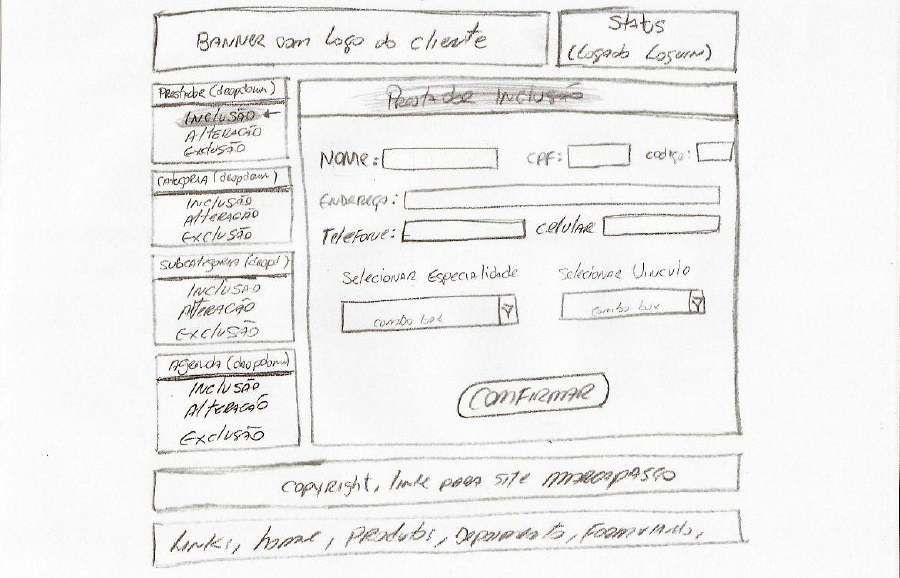 BANNER com Logo do cliente
Stats
(Logado Loguin)
Prestador (dropdown)
INCLUSÃO
ALTERAÇÃO
EXCLUSÃO
CATEGORIA (dropdown)
INCLUSÃO
ALTERAÇÃO
EXCLUSÃO
SUBCATEGORIA (drop)
INCLUSÃO
ALTERAÇÃO
EXCLUSÃO
AGENDA (dropdown)
INCLUSÃO
ALTERAÇÃO
EXCLUSÃO
Prestador INCLUSÃO
NOME: CPF: codigo:
ENDEREÇO:
Telefone: celular
Selecionar Especialidade Selecionar Vinculo
combo box combo box
CONFIRMAR
copyright, link para site marcapasso
Links, home, Produtos, Depoimento,